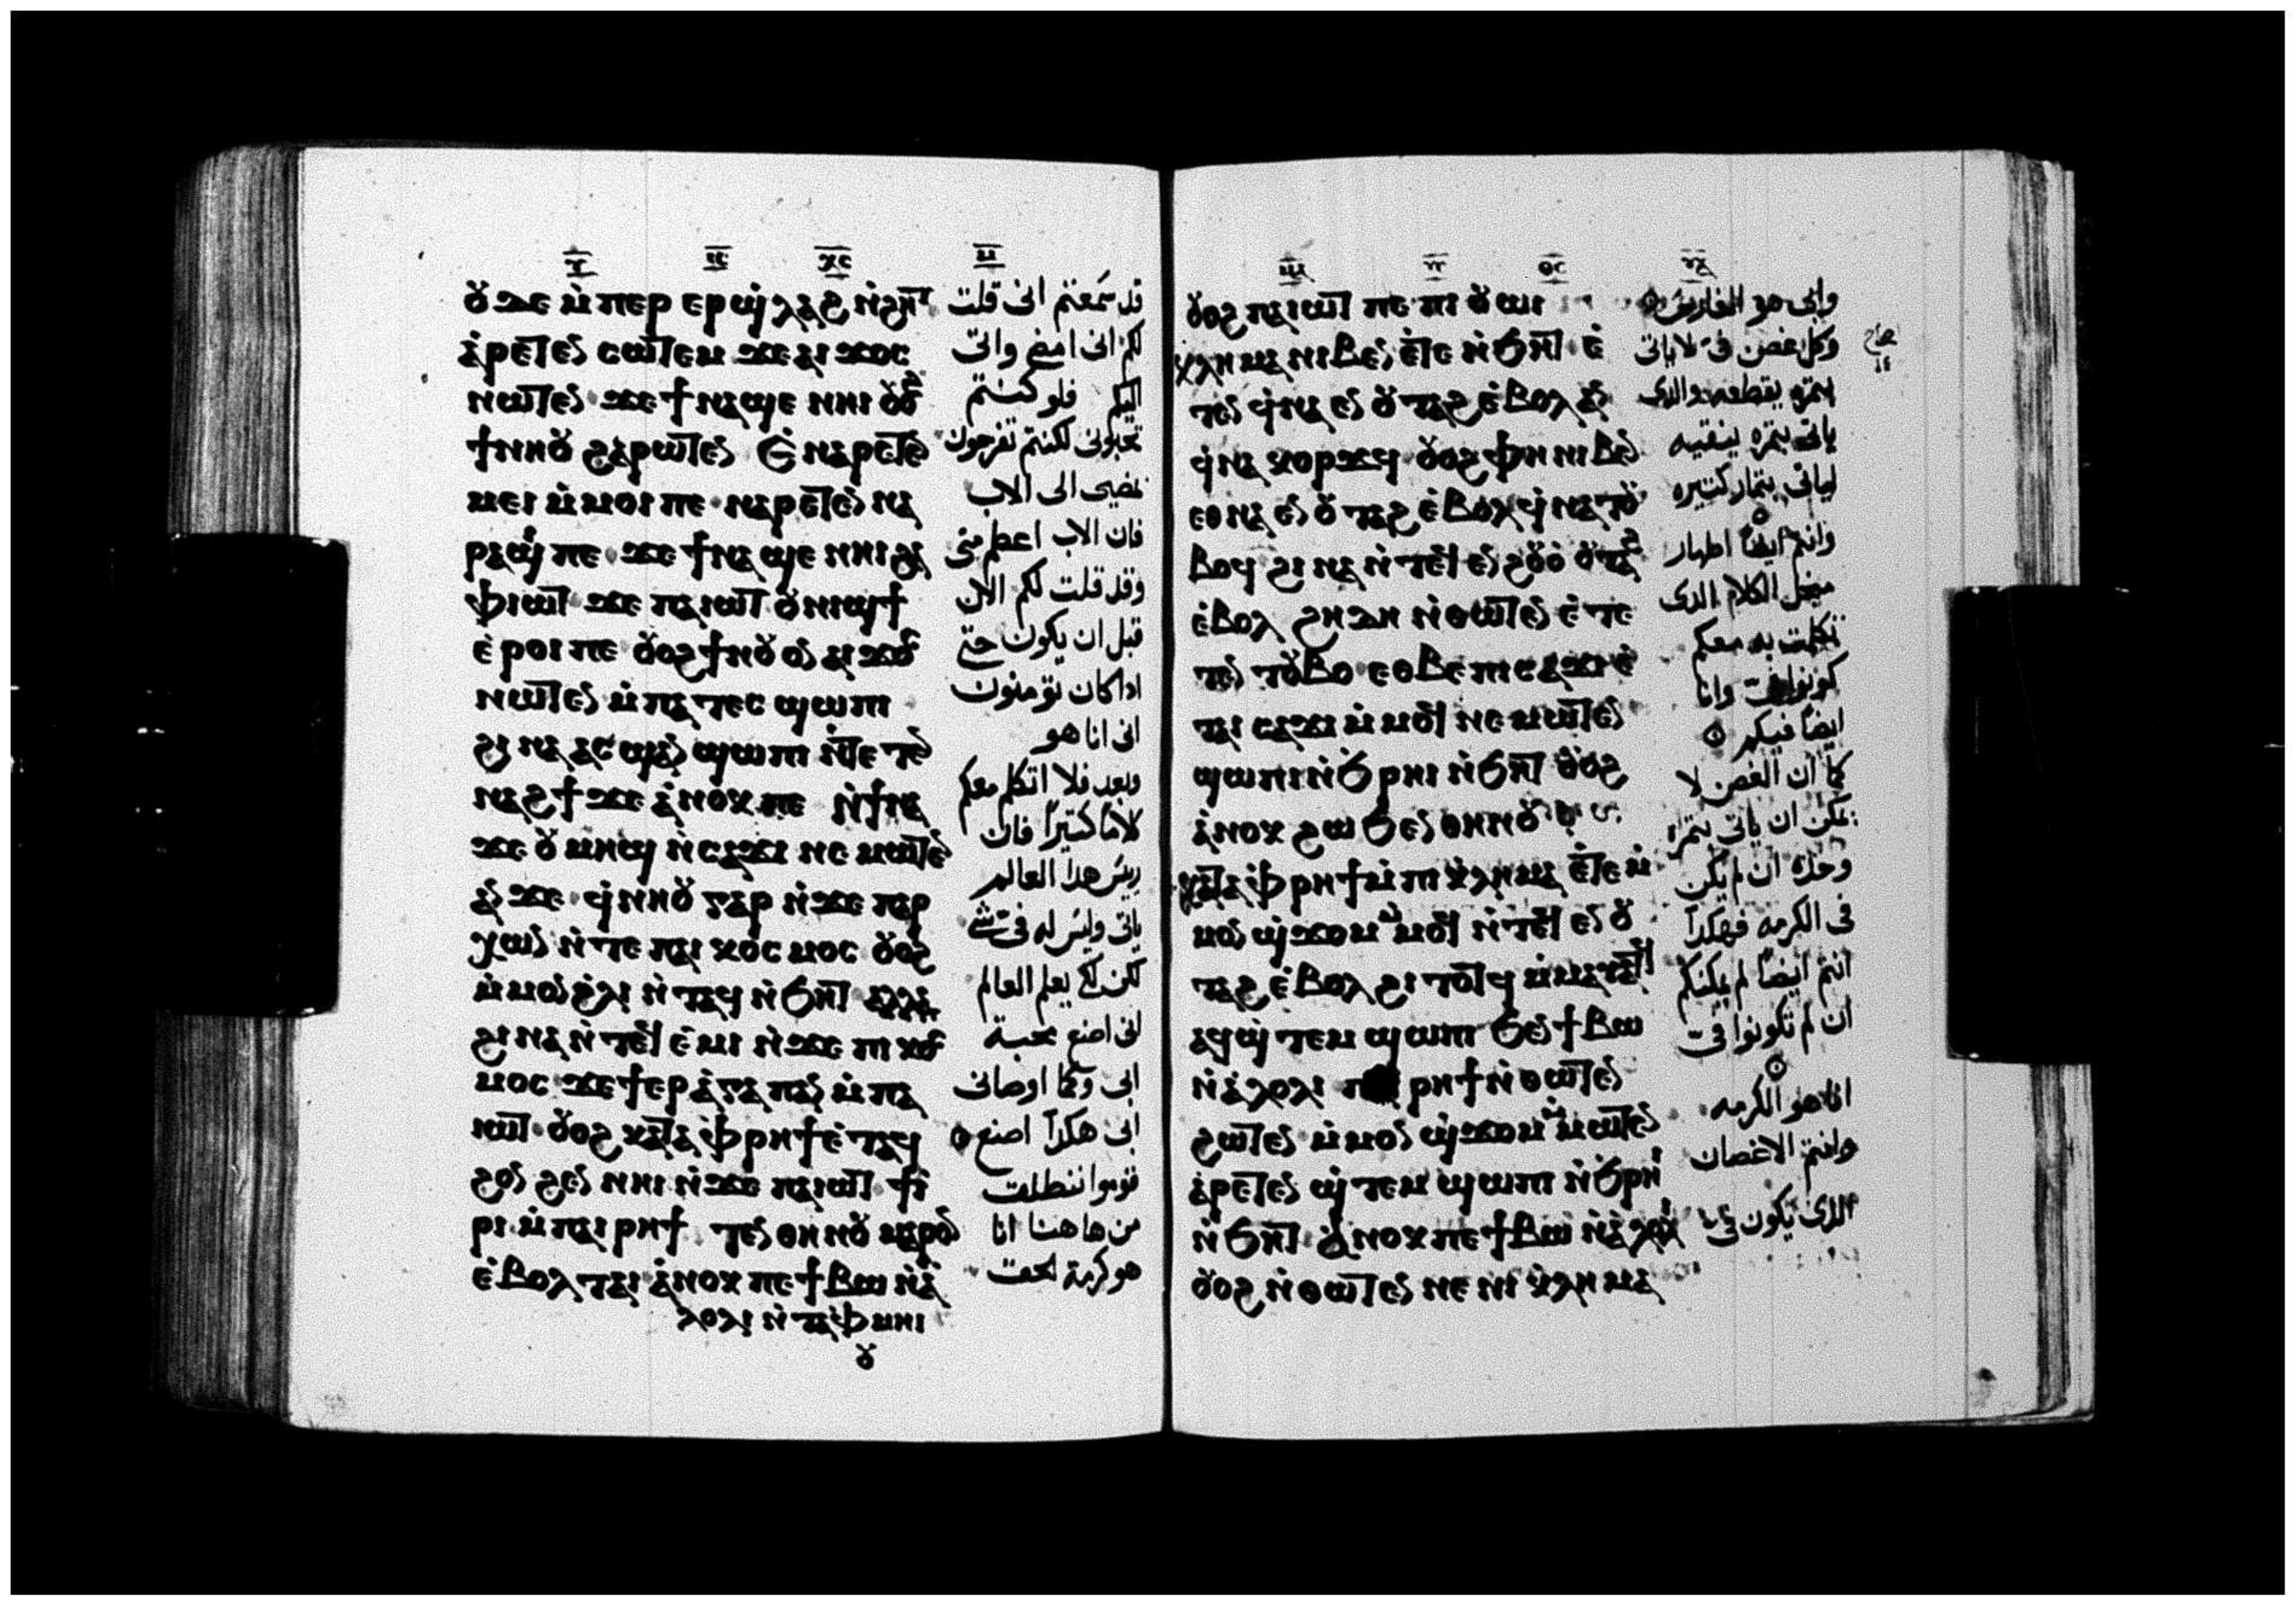 ⲅ̅ ⲓⲥ̅ ⲭⲥ̅ ⲙ̅
ⲟⲩϫⲉ ⲙ̀ⲡⲉⲣ ⲉⲣϣ̀ⲗⲁϩ ⲛ̀ϩⲏⲧ
ⲁ̀ⲣⲉⲧⲉⲛ ⲥⲱⲧⲉⲙ ϫⲉ ⲁⲓϫⲟⲥ
ⲛⲱⲧⲉⲛ ϫⲉ ϯⲛⲁϣⲉ ⲛⲏⲓ ⲟⲩⲟϩ
ϯⲛⲏⲟⲩ ϩⲁⲣⲱⲧⲉⲛ Ⲉ̀ⲛⲁⲣⲉⲧⲉⲛ
ⲙⲉⲓ ⲙ̀ⲙⲟⲓ ⲡⲉ ⲛⲁⲣⲉⲧⲉⲛ ⲛⲁ
ⲣⲁϣⲓ ⲡⲉ ϫⲉ ϯⲛⲁϣⲉ ⲛⲏⲓ ϩⲁ
ⲫⲓⲱⲧ ϫⲉ ⲡⲁⲓⲱⲧ ⲟⲩⲛⲓϣϯ
ⲉ̀ⲣⲟⲓ ⲡⲉ ⲟⲩⲟϩ ϯⲛⲟⲩ ⲟⲛ ⲁⲓϫⲟⲥ
ⲛⲱⲧⲉⲛ ⲙ̀ⲡⲁⲧⲉⲥ ϣⲱⲡⲓ
ϩⲓⲛⲁ ⲁⲥϣⲁⲛ ϣⲱⲡⲓ ⲛ̀ⲧⲉⲧⲉⲛ
ⲛⲁϩϯ ϫⲉ ⲁ̀ⲛⲟⲕ ⲡⲉ ⲛ̀ϯⲛⲁ
ϫⲉ ⲟⲩⲙⲏϣ ⲛ̀ⲥⲁϫⲓ ⲛⲉⲙⲱⲧⲉⲛ
ⲁⲛ ϫⲉ ϥ̀ⲛⲏⲟⲩ ⲅⲁⲣ ⲛ̀ϫⲉ ⲡⲁⲣ
ⲭⲱⲛ ⲛ̀ⲧⲉ ⲡⲁⲓ ⲕⲟⲥⲙⲟⲥ ⲟⲩⲟϩ
ⲙ̀ⲙⲟⲛ ϩ̀ⲗⲓ ⲛ̀ⲧⲁϥ ⲛ̀ϧⲏⲧ ⲁⲗⲗⲁ
ϩⲓⲛⲁ ⲛ̀ⲧⲉϥ ⲉ̀ⲙⲓ ⲛ̀ϫⲉ ⲡⲓ ⲕⲟⲥ
ⲙⲟⲥ ϫⲉ ϯⲉⲣⲁ̀ⲅⲁⲡⲁⲛ ⲙ̀ⲡⲁ
ⲓⲱⲧ ⲟⲩⲟϩ ⲕⲁⲧⲁ ⲫ̀ⲣⲏϯ ⲉ̀ⲧⲁϥ
ϩⲟⲛϩⲉⲛ ⲛⲏⲓ ⲛ̀ϫⲉ ⲡⲁⲓⲱⲧ ϯⲓ̀
ⲣⲓ ⲙ̀ⲡⲁⲓ ⲣⲏϯ ⲧⲉⲛ ⲑⲏⲛⲟⲩ ⲙⲁⲣⲟⲛ
ⲉ̀ⲃⲟⲗ ⲧⲁⲓ ⲁ̀ⲛⲟⲕ ⲡⲉ ϯⲃⲱ ⲛ̀ⲁ̀
ⲗⲟⲗⲓ ⲛ̀ⲧⲁⲫ̀ⲙⲏⲓ
ⲟⲩ
قد سمعتم انى قلت
لكم انى امضى واتى
اليكم فلو كنتم
تحبونى لكنتم تفرحون
بمضيى الى الاب
فان الاب اعظم منى
وقد قلت لكم الان
قبل ان يكون حتى
اداكان تؤمنون
انى انا هو
وبعد فلا اتكلم معكم
كلاما كتيراً فان
رييس هدا العالم
ياتى وليس له فى شى
لكن لكى يعلم العالم
انى اصنع محبة
ابى وكما اوصانى
ابى هكدا اصنع
قوموا ننطلق
من هاهنا انا
هو كرمة الحق
ⲟⲩⲟϩ ⲡⲁⲓⲱⲧ ⲡⲉ ⲡⲓ ⲟⲩⲱⲓ
ⲕ̀ⲗⲏⲙⲁ ⲛⲓⲃⲉⲛ ⲉ̀ⲧⲉ ⲛ̀ϧⲏⲧ ⲉ̀
ⲧⲉⲛ ϥ̀ⲛⲁ ⲉⲛ ⲟⲩⲧⲁϩ ⲉ̀ⲃⲟⲗ ⲁⲛ
ϥ̀ⲛⲁ ⲕⲟⲣϫϥ ⲟⲩⲟϩ ⲫⲏ ⲛⲓⲃⲉⲛ
ⲉⲑⲛⲁ ⲉⲛ ⲟⲩⲧⲁϩ ⲉ̀ⲃⲟⲗ ϥ̀ⲛⲁ ⲧⲟⲩ
ⲃⲟϥ ϩⲓⲛⲁ ⲛ̀ⲧⲉϥ ⲉⲛ ϩⲟⲩⲟ̀ ⲟⲩⲧⲁϩ
ⲉ̀ⲃⲟⲗ ϩⲏⲇⲏ ⲛ̀ⲑⲱⲧⲉⲛ ⲉ̀ⲧⲉ
ⲧⲉⲛ ⲧⲟⲩⲃⲟ ⲉⲑⲃⲉ ⲡⲓⲥⲁϫⲓ ⲉ̀
ⲧⲁⲓ ⲥⲁϫⲓ ⲙ̀ⲙⲟϥ ⲛⲉⲙⲱⲧⲉⲛ
ϣⲱⲡⲓ ⲛ̀ϧⲣⲏⲓ ⲛ̀ϧⲏⲧ ⲟⲩⲟϩ
ⲁ̀ⲛⲟⲕ ϩⲱ ϧⲉⲛ ⲑⲏⲛⲟⲩ
ⲕⲁⲧⲁ ⲫ̀ⲣⲏϯ ⲙ̀ⲡⲓ ⲕ̀ⲗⲏⲙⲁ ⲉ̀ⲧⲉ ⲙ̀
ⲙⲟⲛ ϣ̀ϫⲟⲙ ⲙ̀ⲙⲟϥ ⲛ̀ⲧⲉϥ ⲉⲛ ⲟⲩ
ⲧⲁϩ ⲉ̀ⲃⲟⲗ ϩⲓⲧⲟⲧϥ ⲙ̀ⲙⲁⲩⲁⲧϥ
ⲁϥϣ̀ⲧⲉⲙ ϣⲱⲡⲓ ϧⲉⲛ ϯⲃⲱ
ⲛ̀ⲁ̀ⲗⲟⲗⲓ ⲣⲏϯ ⲛ̀ⲑⲱⲧⲉⲛ
ϩⲱⲧⲉⲛ ⲙ̀ⲙⲟⲛ ϣ̀ϫⲟⲙ ⲙ̀ⲙⲱⲧⲉⲛ
ⲁ̀ⲣⲉⲧⲉⲛ ϣ̀ⲧⲉⲙ ϣⲱⲡⲓ ⲛ̀ϧⲣⲏⲓ
ⲛ̀ϧⲏⲧ ⲁ̀ⲛⲟⲕ ⲡⲉ ϯⲃⲱ ⲛ̀ⲁ̀ⲗⲟⲗⲓ
ⲟⲩⲟϩ ⲛ̀ⲑⲱⲧⲉⲛ ⲛⲉ ⲛⲓ ⲕ̀ⲗⲏⲙⲁ
وابى هو الفارس
وكل غصن فى لاياتى
بتمره يقطعه والدى
ياتى بتمره ينقيه
لياتى بتمار كتيره
وانتم ايضاً اطهار
من اجل الكلام الدى
تكلمت به معكم
وانا
ايضاً فيكم
كما ان الغصن لا
يمكن ان ياتى بتمرة
وحده ان لم يكن
فى الكرمه فهكدا
انتم ايضاً لم يمكنكم
ان لم تكونوا فى
اناهو الكرمه
وانتم الاغصان
الدى يكون فى